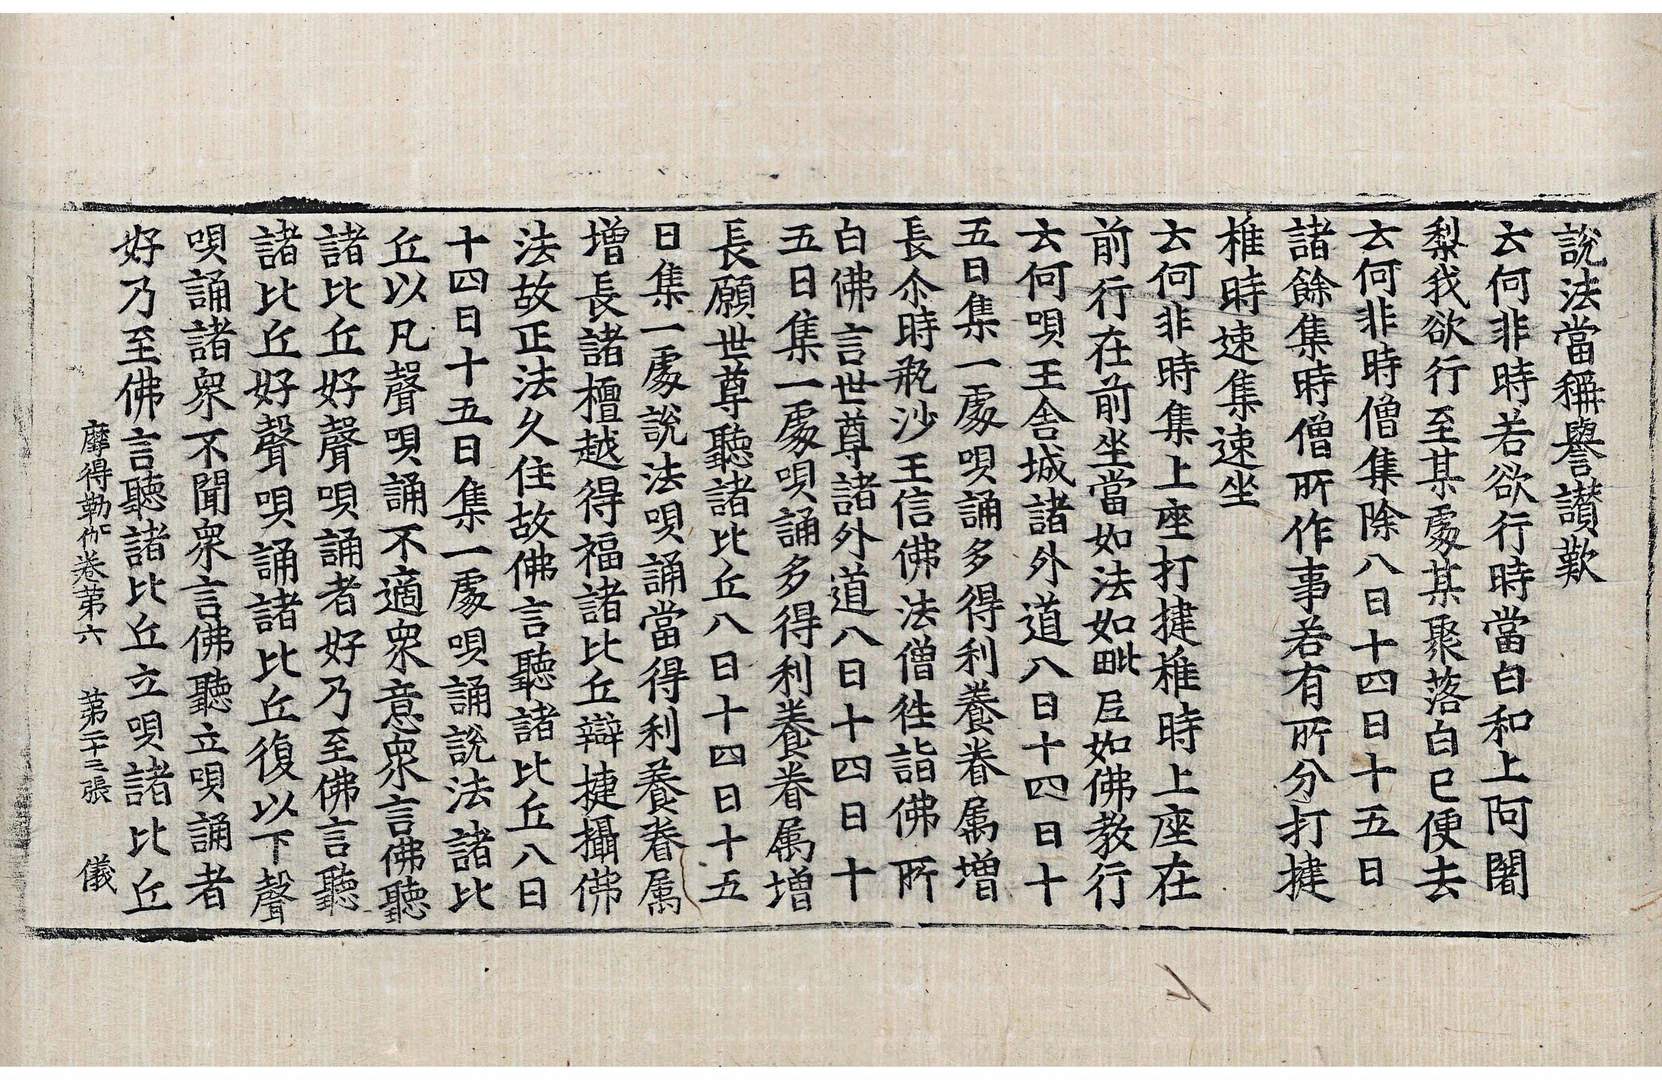 說法當稱譽讃歎
云何非時若欲行時當白和上阿闍
梨我欲行至某處某聚落白已便去
云何非時僧集除八日十四日十五日
諸餘集時僧所作事若有所分打揵
椎時速集速坐
云何非時集上座打揵椎時上座在
前行在前坐當如法如毗尼如佛教行
云何唄王舍城諸外道八日十四日十
五日集一處唄誦多得利養眷属增
長尒時瓶沙王信佛法僧徃詣佛所
白佛言世尊諸外道八日十四日十
五日集一處唄誦多得利養眷属增
長願世尊聽諸比丘八日十四日十五
日集一處說法唄誦當得利養眷属
增長諸檀越得福諸比丘辯捷攝佛
法故正法久住故佛言聽諸比丘八日
十四日十五日集一處唄誦說法諸比
丘以凡聲唄誦不適衆意衆言佛聽
諸比丘好聲唄誦者好乃至佛言聽
諸比丘好聲唄誦諸比丘復以下聲
唄誦諸衆不聞衆言佛聽立唄誦者
好乃至佛言聽諸比丘立唄諸比丘
摩得勒伽卷第六 第二十三張 儀